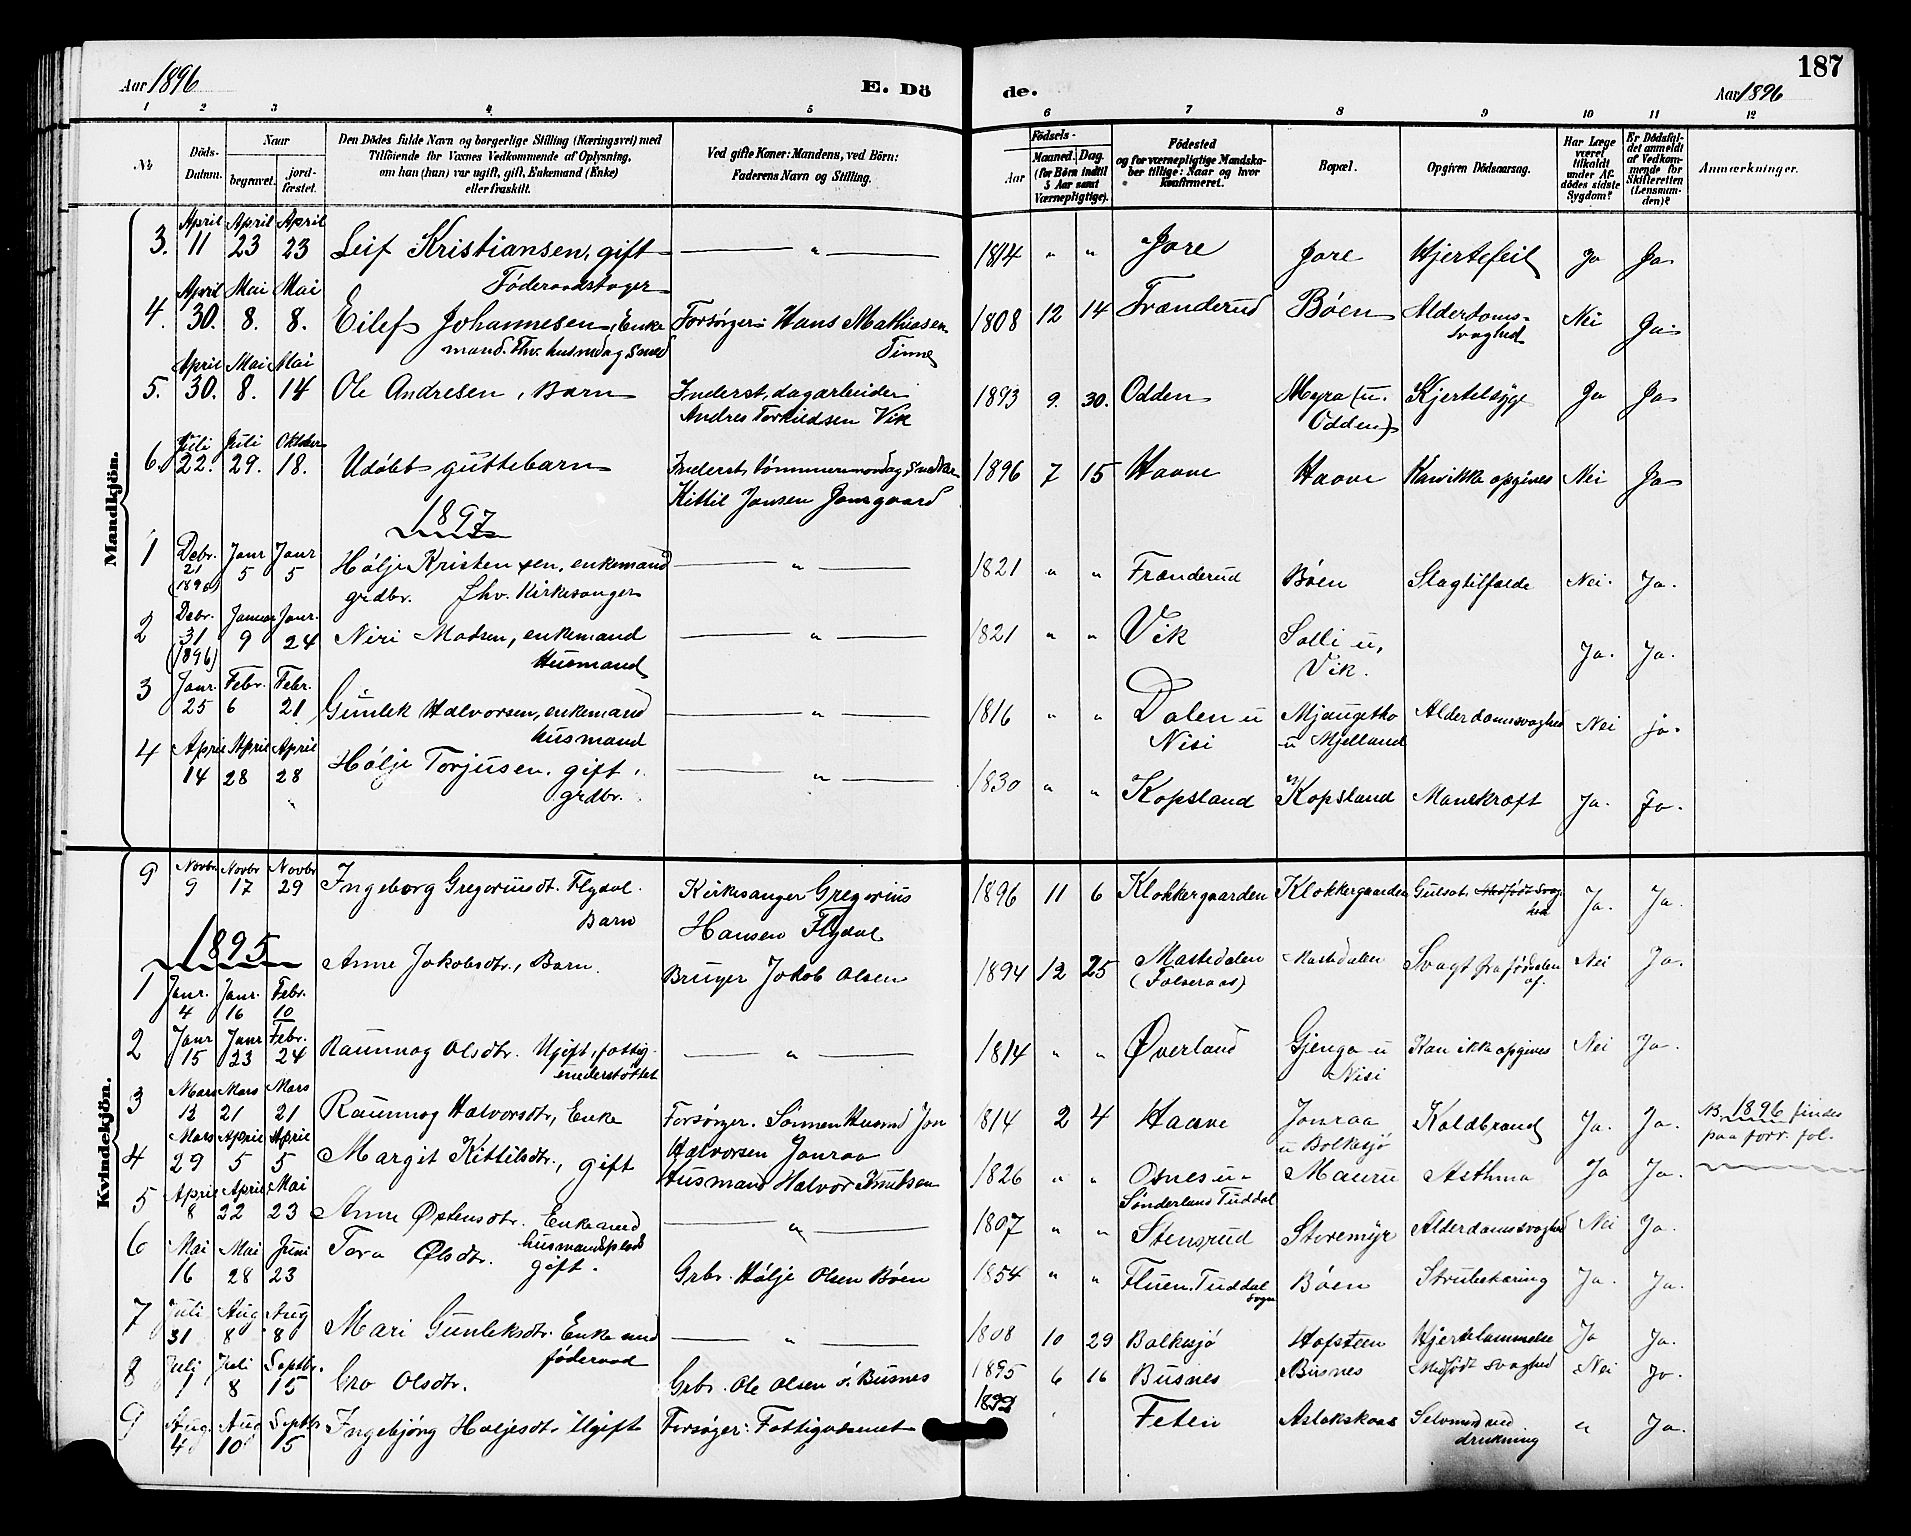 187
Aar 1896
E. Dö
de.
Aar 1896
1 2 3 4 5 6 7 8 9 10 11 12
№
Döds-Datum.
Naar
begravet.
jord-fæstet.
Den Dödes fulde Navn og borgerlige Stilling (Næringsvei) med
Tilföiende for Voxnes Vedkommende af Oplysning,
om han (hun) var ugift, gift, Enkemand (Enke)
eller fraskilt.
Ved gifte Koner: Mandens, ved Börn:
Faderens Navn og Stilling.
Födsels-
Aar
Maaned. Dag.
(for Börn indtil
5 Aar samt
Værnepligtige).
Födested
og for værnepligtige Mandska-
ber tillige: Naar og hvor
konfirmeret.
Bopæl.
Opgiven Dödsaarsag.
Har Læge
været
tilkaldt
under Af-
dödes sidste
Sygdom?
Er Dödsfal-
det anmeldt
af Vedkom-
mende for
Skifteretten
(Lensman-
den)?
Anmærkninger.
Mandkjön.
April April April
3. 11 23 23 Leif Kristiansen, gift — " — 1814 " " Jore Jore Hjertefeil Ja Ja
Föderaadstager
April Mai Mai
4. 30. 8. 8. Eilef Johannesen, Enke Forsørger: Hans Mathiasen 1808 12 14 Trænderud Böen Alderdoms- Nei Ja
mand. Fhv. husmd og smed Tinne svaghed
April Mai Mai
5. 30. 8. 14 Ole Andresen, Barn Inderst, dagarbeider 1893 9. 30. Odden Myra (u. Kjertelsyge Ja Ja
Andres Torkildsen Vik Odden)
Juli Juli Oktober
6. 22. 29. 18. Udöbt guttebarn Inderst, tömmermand og snedker 1896 7 15 Haave Haave Kan ikke opgives Nei Ja
Kittil Jansen
1897
1 Debr. 21 (1896) Janr 5 Janr 5 Hölje Kristensen, enkemand — " — 1821 " " Frænderud Böen Slagtilfælde Nei. Ja.
grdbr. fhv. Kirkesanger
2 Debr. 31 (1896) Januar 9 Janr. 24 Niri Madsen, enkemand — " — 1821 " " Vik Solli u. Ja. Ja.
Husmand Vik.
3 Janr. 25 Febr. 6 Febr. 21 Gunlek Halvorsen, enkemand — " — 1816 " " Dalen u Alderdomssvaghed Nei ja.
husmand Nisi u Mjelland
4 April 14 April 28 April 28 Hölje Torjusen. gift. — " — 1830 " " Kopsland Kopsland Ja. Ja.
grdbr.
Kvindekjön.
9 Novbr 9 Novbr 17 Novbr 29 Ingeborg Gregoriusdt. Flydal. Kirkesanger Gregorius 1896 11 6 Klokkergaarden Klokkergaarden Gulsot. Medfödt Svag- Ja. Ja.
Barn Hansen Flydal hed
1895
1 Janr. 4 Janr. 16 Febr. 10 Anne Jakobsdtr., Barn. Bruger Jakob Olsen 1894 12 25 Mastedalen Mastedalen Svagt fra födselen Nei Ja.
(Folseraas) af.
2 Janr 15 Janr 23 Febr. 24 Raunnog Olsdtr. Ugift, fattig- — " — 1814 " " Øverland Gjenga u Kan ikke opgives Nei Ja.
understöttet Nisi
3 Mars 12 Mars 21 Mars 21 Raunnog Halvorsdtr, Enke Forsörger. Sönnen Husmd Jon 1814 2 4 Haave Jonraa Koldbrand Ja. Ja. NB. 1896 findes
Halvorsen Jonraa u Bolkesjö paa forr. fol.
4 Mars 29 April 5 April 5 Margit Kittilsdtr., gift Husmand Halvor Knudsen 1826 " " Osnes u. Mauru Asthma Ja Ja.
Sönderland Tuddal
5 April 8 April 22 Mai 23 Anne Østensdtr. Enke med — " — 1807 " " Stensrud Storemyr Alderdomssvaghed Nei Ja.
husmandsplads
6 Mai 16 Mai 28 Juni 23 Tora Ølsdtr. gift. Grbr. Hölje Olsen Böen 1854 " " Fluen. Tuddal Böen Strubetæring Ja. Ja.
sogn
7 Juli 31 Aug 8 Aug 8 Mari Gunleksdtr. Enke med — " — 1808 10 29 Bolkesjö Hofsteen Hjertelammelse Ja Ja.
föderaad
8 Juli 1 Juli 8 Septbr. 15 Gro Olsdtr. Grbr. Ole Olsen ö. Busnes 1895 6 16 Busnes Busnes Medfödt svaghed Nei Ja.
9 Aug 4 Aug 10 Septbr 15 Ingebjörg Haljesdtr. Ugift Forsörger: Fattigvæsenet Feten Aslakskaas Selvmord ved " Ja.
drukning